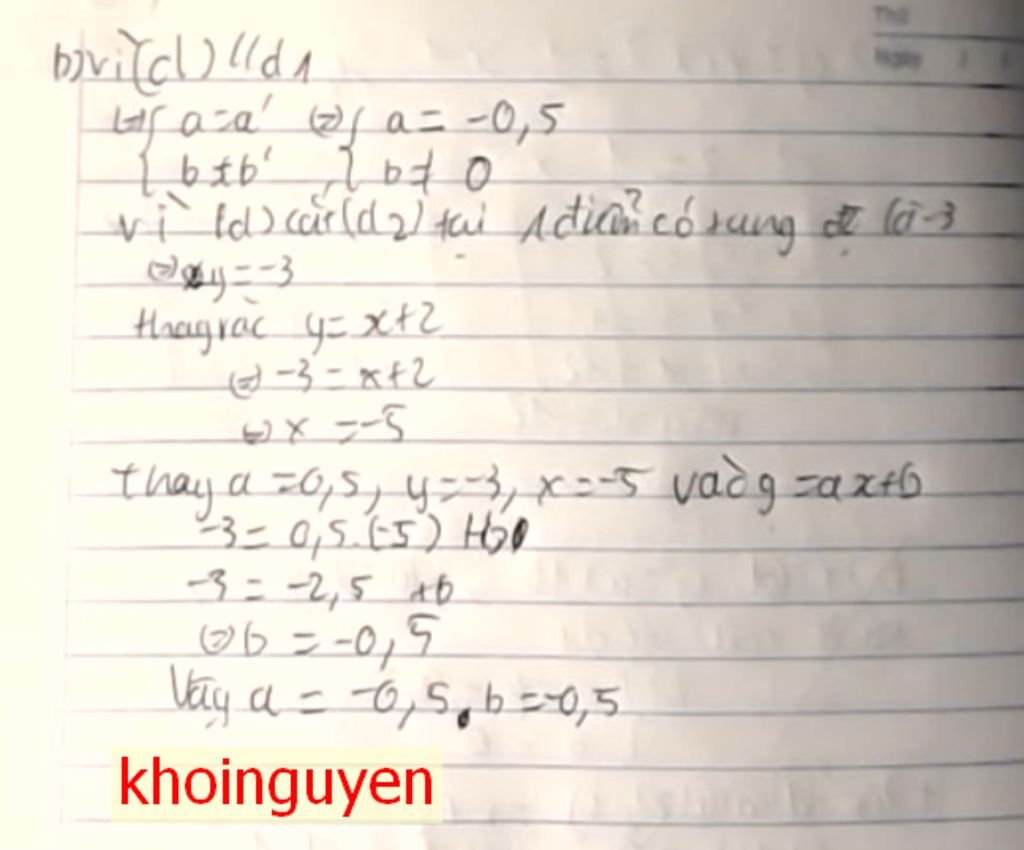 Thứ
Ngày / /
b) vì (d) // d1
(=) { a = a' (=) { a = -0,5
{ b ≠ b' { b ≠ 0
vì (d) cắt (d2) tại 1 điểm có tung độ là -3
(=) y = -3
thay vào y = x+2
(=) -3 = x+2
(=) x = -5
thay a = 0,5, y = -3, x = -5 vào y = ax+b
-3 = 0,5.(-5) +b
-3 = -2,5 +b
(=) b = -0,5
Vậy a = -0,5. b = -0,5
khoinguyen